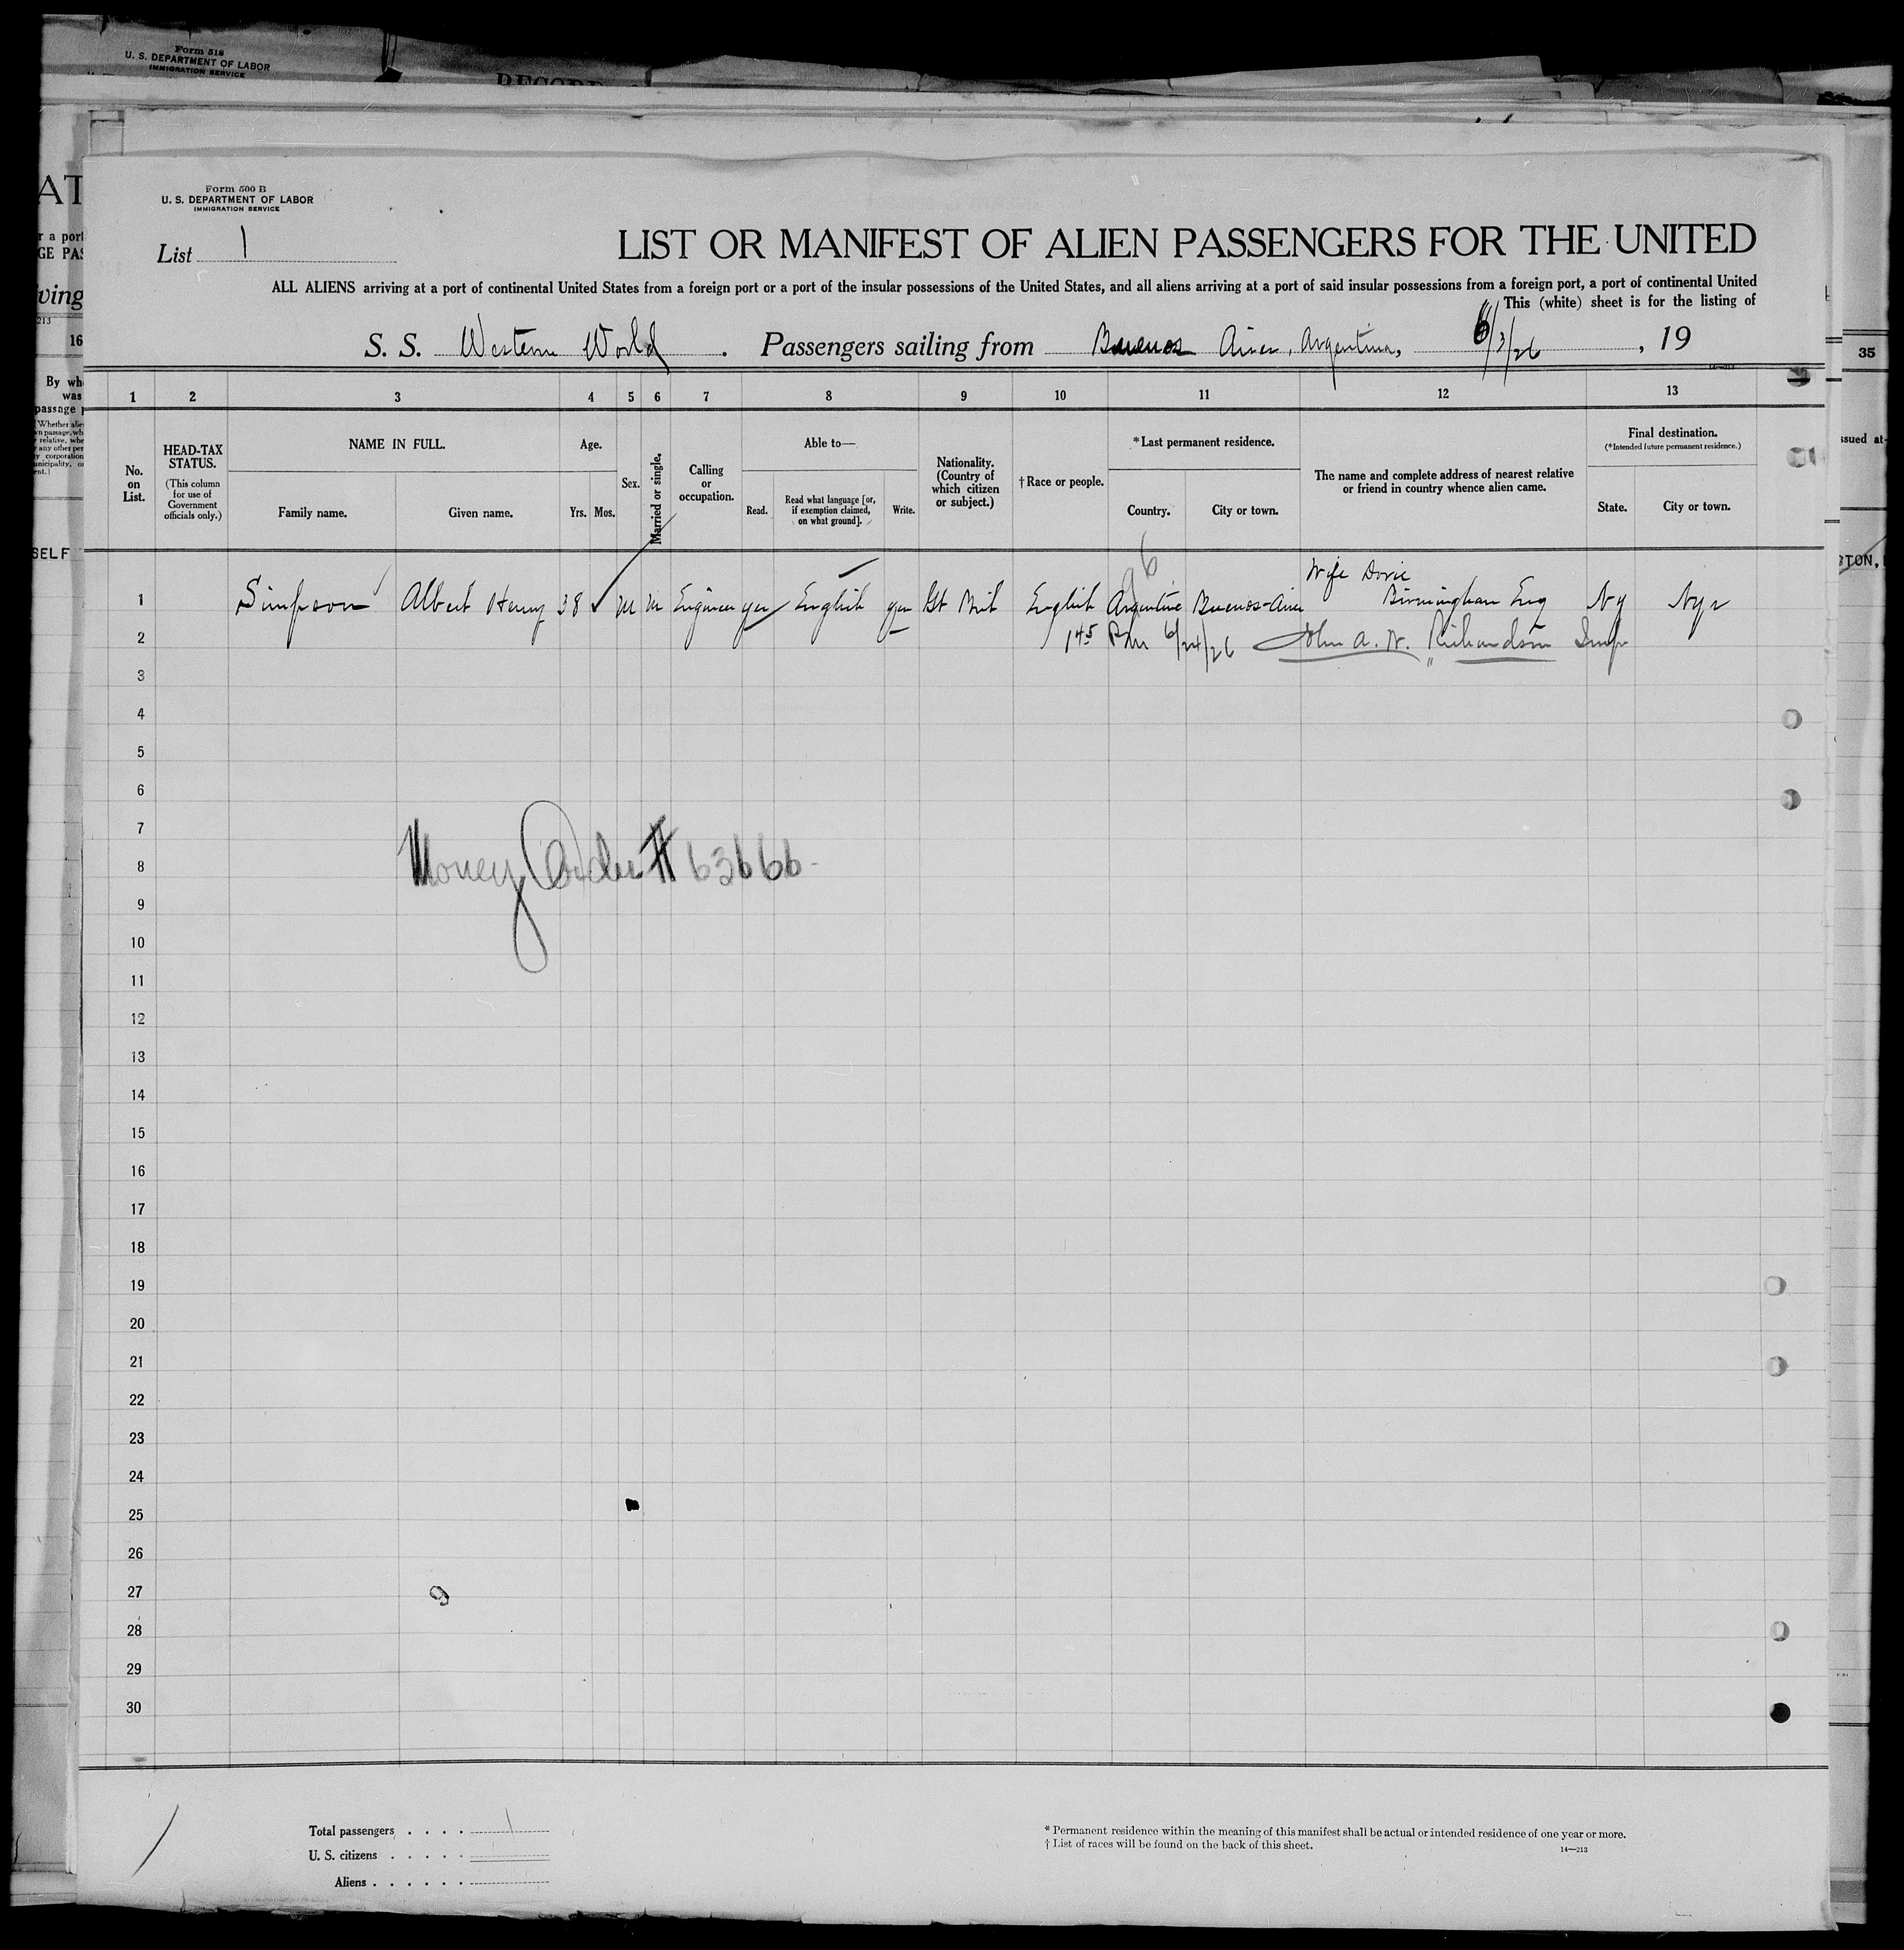 Form 518
U. S. DEPARTMENT OF LABOR
IMMIGRATION SERVICE
RECORD
Form 500 B
U. S. DEPARTMENT OF LABOR
IMMIGRATION SERVICE
List 1
LIST OR MANIFEST OF ALIEN PASSENGERS FOR THE UNITED
ALL ALIENS arriving at a port of continental United States from a foreign port or a port of the insular possessions of the United States, and all aliens arriving at a port of said insular possessions from a foreign port, a port of continental United
This (white) sheet is for the listing of
S. S. Western World. Passengers sailing from Buenos Aires, Argentina, 6/3/26, 19
1 2 3 4 5 6 7 8 9 10 11 12 13
No. on List.
HEAD-TAX STATUS.
(This column for use of Government officials only.)
NAME IN FULL.
Family name. Given name.
Age.
Yrs. Mos.
Sex.
Married or single.
Calling or occupation.
Able to—
Read.
Read what language [or, if exemption claimed, on what ground].
Write.
Nationality. (Country of which citizen or subject.)
† Race or people.
* Last permanent residence.
Country. City or town.
The name and complete address of nearest relative or friend in country whence alien came.
Final destination.
(* Intended future permanent residence.)
State. City or town.
Wife Doris
1 Simpson Albert Henry 38 M M Engineer yes English yes Gt Brit English Argentine Buenos-Aires Birmingham Eng Ny Nyc
2 1 45 PM 6/24/26 John A. W. Richardson Insp
3
4
5
6
7
8 Money Order # 63666
9
10
11
12
13
14
15
16
17
18
19
20
21
22
23
24
25
26
27 9
28
29
30
Total passengers . . . . 1
U. S. citizens . . . . .
Aliens . . . . . .
* Permanent residence within the meaning of this manifest shall be actual or intended residence of one year or more.
† List of races will be found on the back of this sheet.
14—213